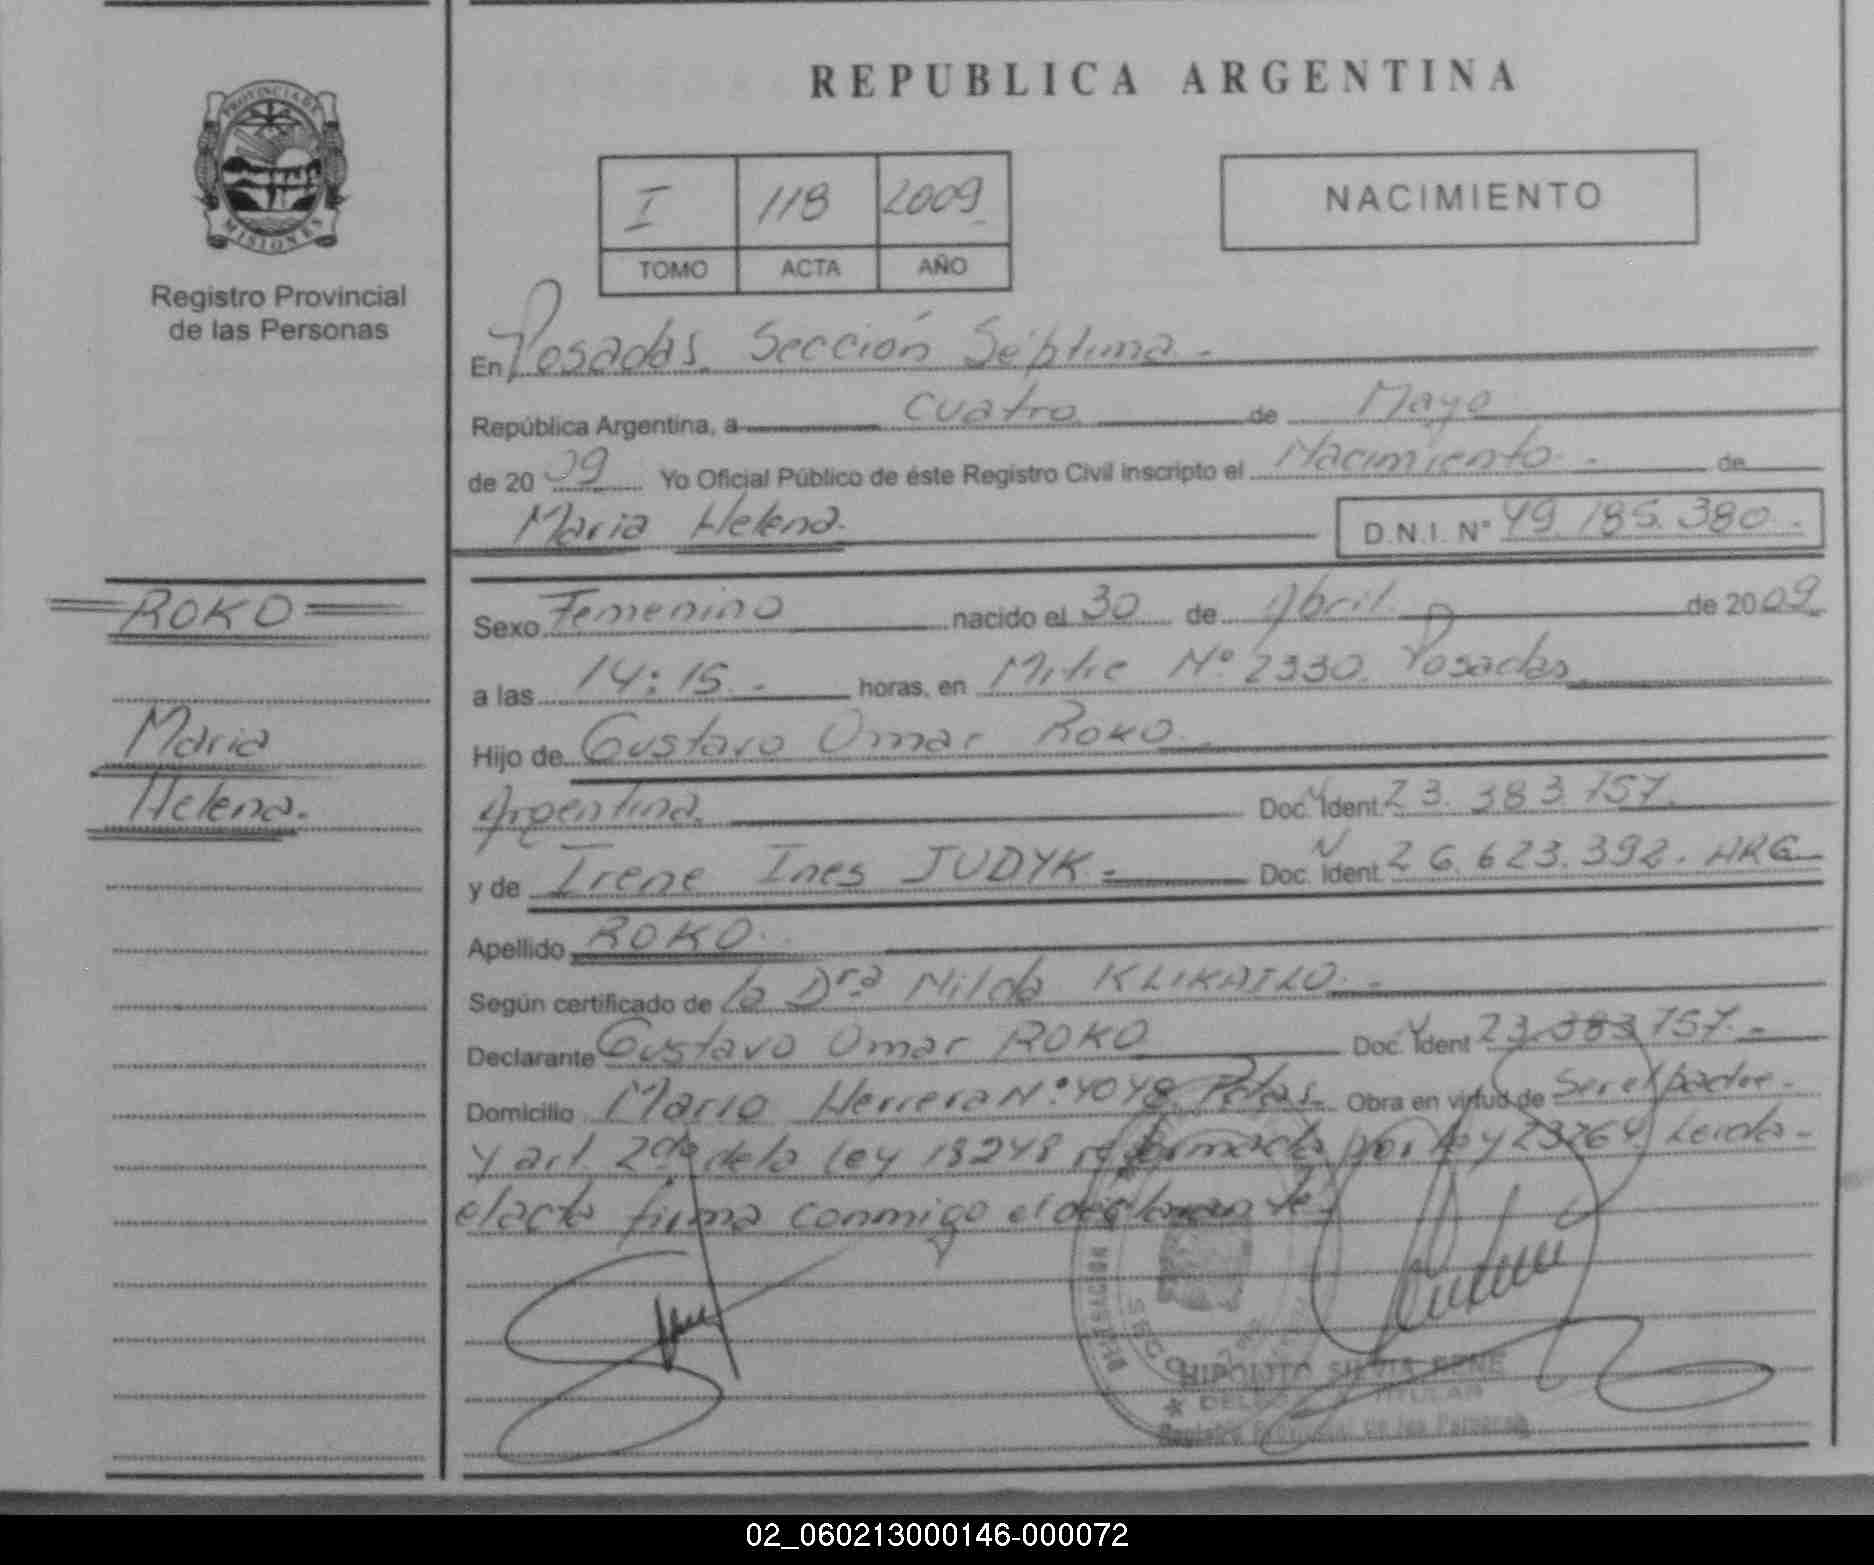 PROVINCIA DE
MISIONES
Registro Provincial
de las Personas
REPUBLICA ARGENTINA
I 118 2009
TOMO ACTA AÑO
NACIMIENTO
En Posadas Sección Séptima.-
República Argentina, a cuatro de Mayo
de 20 09 Yo Oficial Público de éste Registro Civil inscripto el Nacimiento.- de
Maria Helena. D.N.I. N° 49.185.380.-
ROKO
Maria
Helena.
Sexo Femenino nacido el 30 de Abril de 2009
a las 14:15.- horas, en Mitre N° 2330. Posadas
Hijo de Gustavo Omar Roko.
Argentina. Doc. Ident. 23.383.757.
y de Irene Ines JUDYK.- Doc. Ident. 26.623.392. ARG
Apellido ROKO.
Según certificado de la Dra Nilda KLIKAILO.-
Declarante Gustavo Omar ROKO Doc. Ident 23.383757.-
Domicilio Mario Herrera N°4048 Pdas. Obra en virtud de Ser el padre.
y art. 2do de la ley 18248 reformada por ley 23264. Leida
el acta firma conmigo el declarante.
HIPOLITO SILVIA RENE
TITULAR
Registro Provincial de las Personas
02_060213000146-000072